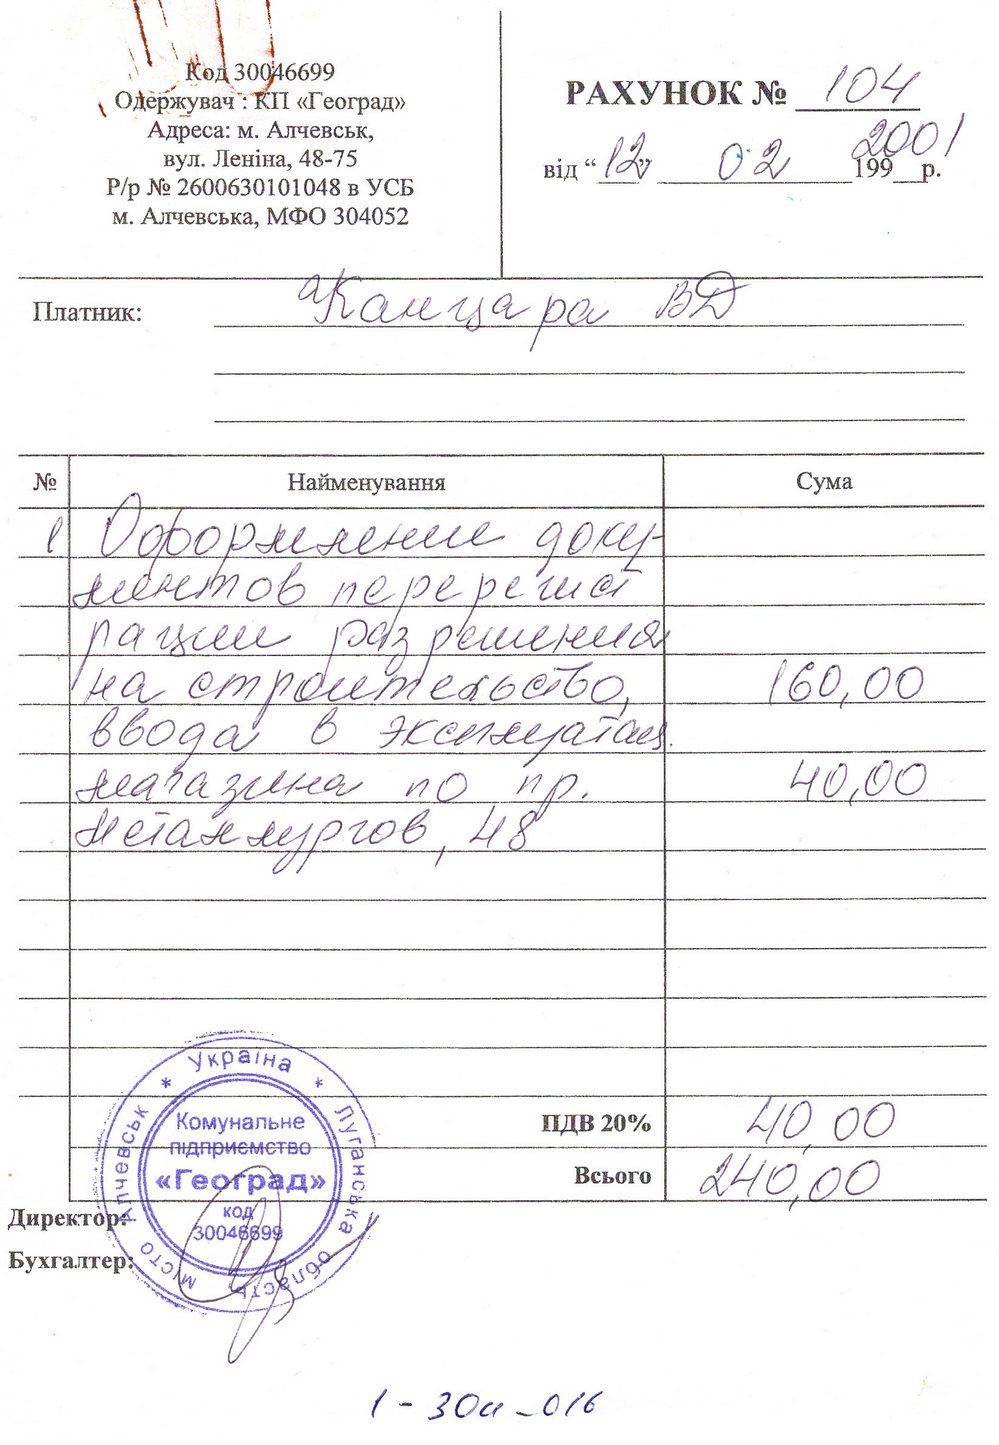 Код 30046699
Одержувач : КП «Геоград»
Адреса: м. Алчевськ,
вул. Леніна, 48-75
Р/р № 2600630101048 в УСБ
м. Алчевська, МФО 304052
РАХУНОК № 104
від “ 12 ” 02 2001 199__р.
Платник: Канцара ВД
№ Найменування Сума
1 Оформление доку-
ментов перерегист
рации разрешения
на строительство, 160,00
ввода в эксплуатац.
магазина по пр. 40,00
Металлургов, 48
ПДВ 20% 40,00
Всього 240,00
Директор:
Бухгалтер:
* Україна * Луганська область місто Алчевськ
Комунальне
підприємство
«Геоград»
код
30046699
1-30и-016